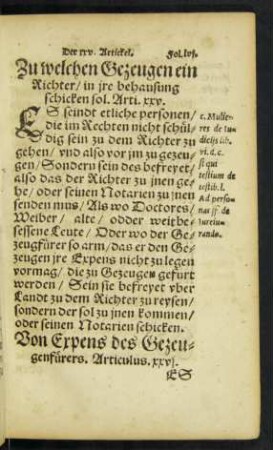 Der xxv. Artickel. Fol. lvj.
Zu welchen Gezeugen ein
Richter/ in jre behausung
schicken sol. Arti. xxv.
ES seindt etliche personen/
die im Rechten nicht schül-
dig sein zu dem Richter zu
gehen/ vnd also vor jm zu gezeu-
gen/ Sondern sein des befreyet/
also das der Richter zu jnen ge-
he/ oder seinen Notarien zu jnen
senden mus/ Als wo Doctores/
Weiber/ alte/ odder weitbe-
sessene Leute/ Oder wo der Ge-
zeugfürer so arm/ das er den Ge-
zeugen jre Expens nicht zu legen
vormag/ die zu Gezeugen gefurt
werden/ Sein sie befreyet vber
Landt zu dem Richter zu reysen/
sondern der sol zu jnen kommen/
oder seinen Notarien schicken.
c. Mulie-
res de iu-
dicijs lib.
vi. d. c.
si qui
testium de
testib. l.
Ad perso-
nas ff. de
iureiu-
rando.
Von Expens des Gezeu-
genfürers. Articulus. xxvj.
ES